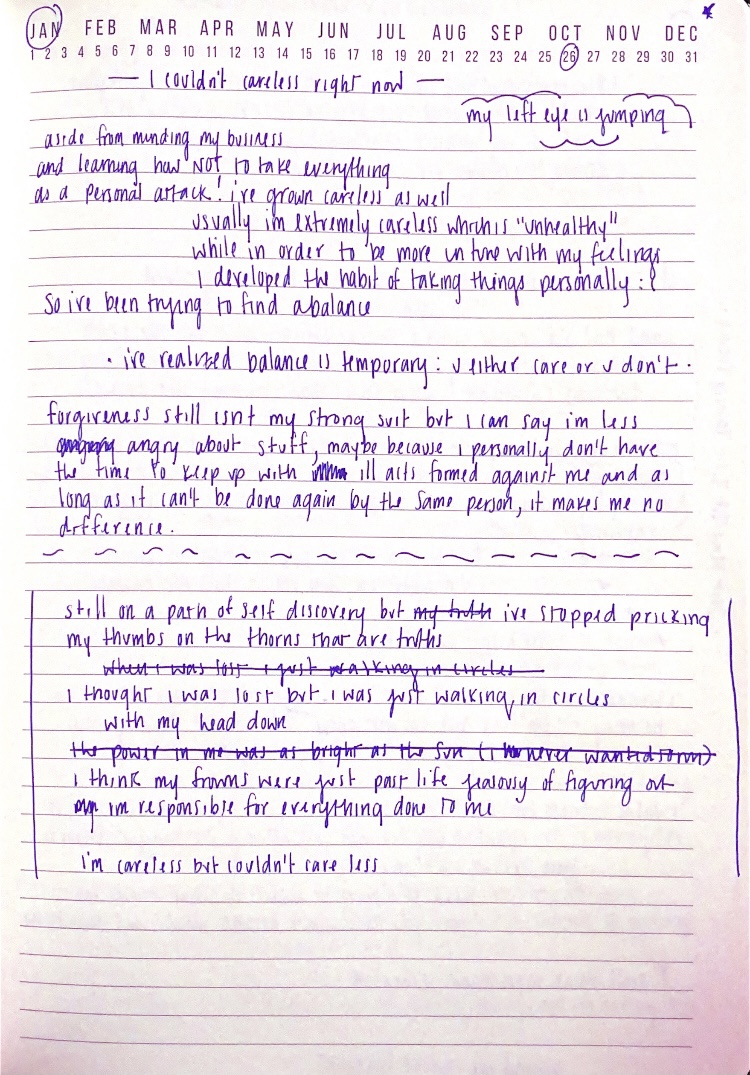 JAN FEB MAR APR MAY JUN JUL AUG SEP OCT NOV DEC
1 2 3 4 5 6 7 8 9 10 11 12 13 14 15 16 17 18 19 20 21 22 23 24 25 26 27 28 29 30 31
— I couldn't careless right now —
my left eye is jumping
aside from minding my business
and learning how NOT to take everything
as a personal attack! i've grown careless as well
usually im extremely careless which is "unhealthy"
while in order to be more in tune with my feelings
I developed the habit of taking things personally :(
So ive been trying to find a balance
· i've realized balance is temporary : u either care or u don't ·
forgiveness still isnt my strong suit but I can say im less
angry about stuff, maybe because i personally don't have
the time to keep up with ill acts formed against me and as
long as it can't be done again by the same person, it makes me no
difference.
still on a path of self discovery but my truth ive stopped pricking
my thumbs on the thorns that are truths
when i was lost i just walking in circles
I thought i was lost but i was just walking in circles
with my head down
the power in me was as bright as the sun (i never wanted
i think my frowns were just past life jealousy of figuring out
im responsible for everything done to me
i'm careless but couldn't care less